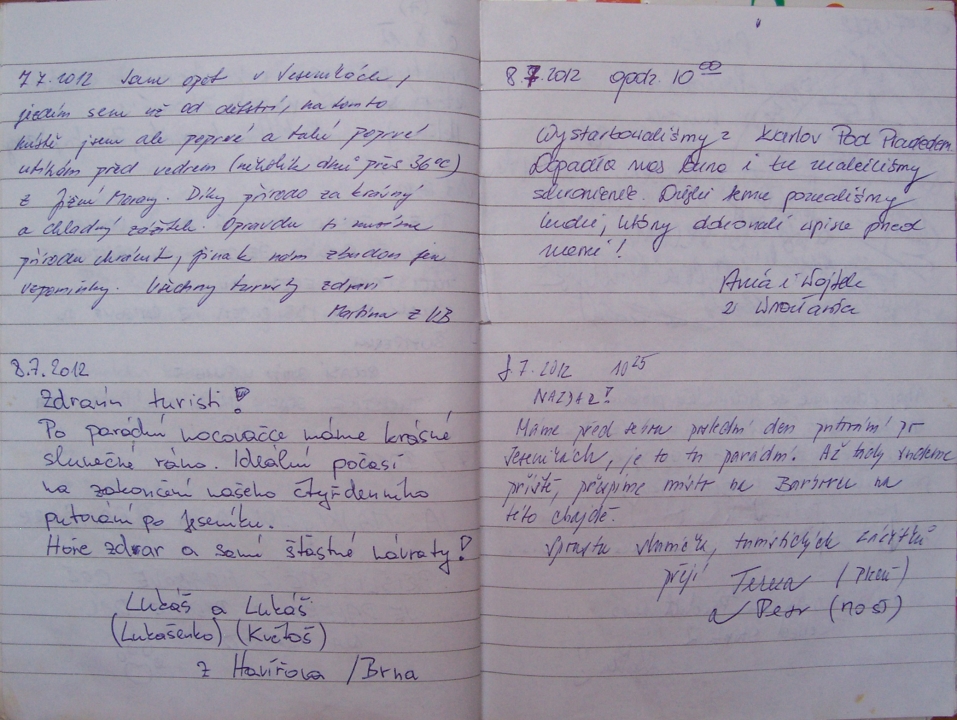 7.7.2012 Jsem opět v Jeseníkách,
jezdím sem už od dětství, na tomto
místě jsem ale poprvé a také poprvé
utíkám před vedrem (několik dnů přes 36°C)
z Jižní Moravy. Díky přírodo za krásný
a chladný zážitek. Opravdu si musíme
přírodu chránit, jinak nám zbudou jen
vzpomínky. Všechny turisty zdraví
Martina z UB
8.7.2012
Zdravím turisti!
Po parádní nocovačce máme krásné
slunečné ráno. Ideální počasí
na zakončení našeho čtyřdenního
putování po Jeseníku.
Hoře zdar a samé šťastné návraty!
Lukáš a Lukáš
(Lukašenko) (Květoš)
z Havířova /Brna
8.7.2012 godz. 10 00
Wystartowaliśmy z Karlov Pod Pradedem.
Dopadła nas burza i tu znaleźliśmy
schronienie. Dzięki temu poznaliśmy
ludzi, którzy dokonali wpisu przed
nami!
Ania i Wojtek
z Wrocławia
8.7.2012 10 25
NAZDAR!
Máme před sebou poslední den putování po
Jeseníkách, je to tu parádní. Až tudy půjdeme
příště, přespíme místo na Barboru na
této chajdě.
Spoustu sluníčka, turistických zážitků
přejí Tereza (Plzeň)
a Petr (Most)